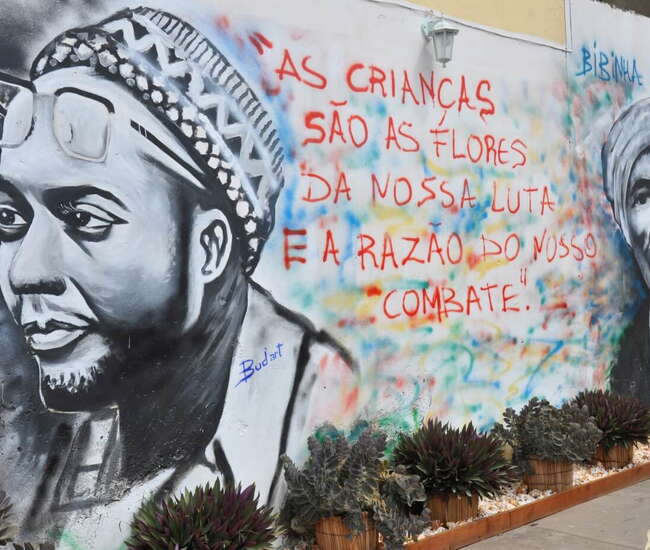 "AS CRIANÇAS
SÃO AS FLORES
DA NOSSA LUTA
E A RAZÃO DO NOSSO
COMBATE".
BiBiNHA
Bud'art